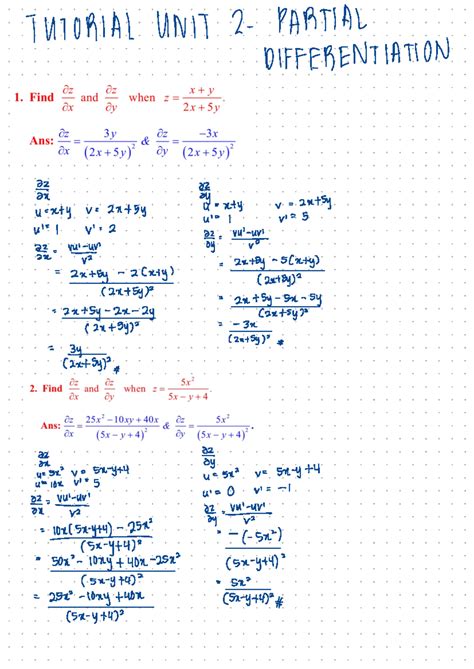 TUTORIAL UNIT 2 - PARTIAL
DIFFERENTIATION
1. Find ∂z/∂x and ∂z/∂y when z = (x + y)/(2x + 5y).
Ans: ∂z/∂x = 3y/(2x + 5y)² & ∂z/∂y = −3x/(2x + 5y)²
∂z/∂x
u = x+y v = 2x+5y
u' = 1 v' = 2
∂z/∂x = (vu'-uv')/v²
= (2x+5y - 2(x+y))/(2x+5y)²
= (2x+5y - 2x - 2y)/(2x+5y)²
= 3y/(2x+5y)² #
∂z/∂y
u = x+y v = 2x+5y
u' = 1 v' = 5
∂z/∂y = (vu'-uv')/v²
= (2x+5y - 5(x+y))/(2x+5y)²
= (2x+5y-5x-5y)/(2x+5y)²
= -3x/(2x+5y)² #
2. Find ∂z/∂x and ∂z/∂y when z = 5x²/(5x − y + 4).
Ans: ∂z/∂x = (25x² − 10xy + 40x)/(5x − y + 4)² & ∂z/∂y = 5x²/(5x − y + 4)².
∂z/∂x
u = 5x² v = 5x-y+4
u' = 10x v' = 5
∂z/∂x = (vu'-uv')/v²
= (10x(5x-y+4) - 25x²)/(5x-y+4)²
= (50x² - 10xy + 40x - 25x²)/(5x-y+4)²
= (25x² - 10xy + 40x)/(5x-y+4)²
∂z/∂y
u = 5x² v = 5x-y+4
u' = 0 v' = -1
∂z/∂y = (vu'-uv')/v²
= -(-5x²)/(5x-y+4)²
= 5x²/(5x-y+4)² #